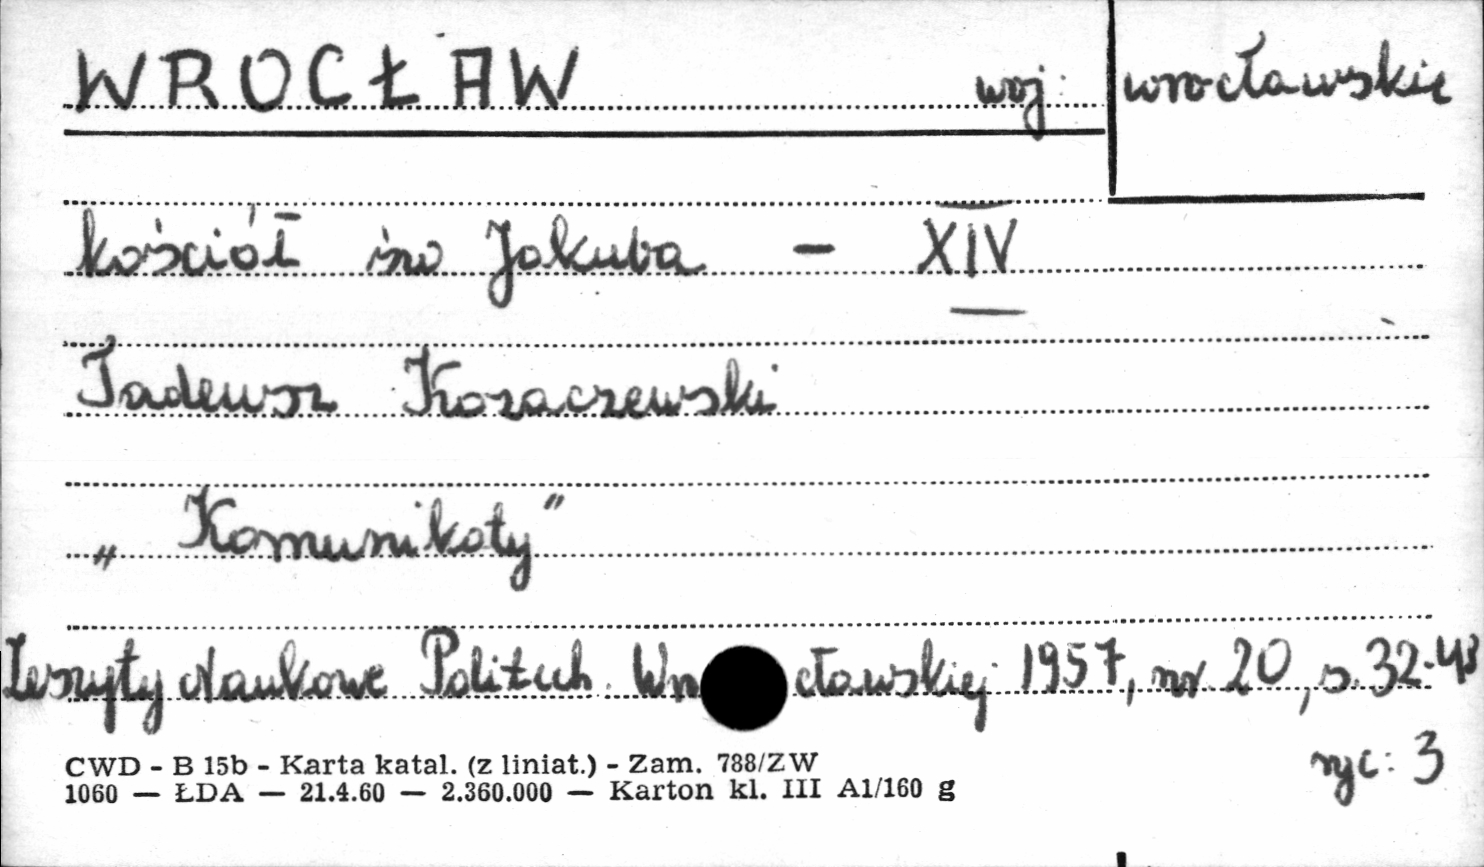 WROCŁAW woj: wrocławskie
kościół św Jakuba - XIV
Tadeusz Kozaczewski
„Komunikaty"
Zeszyty Naukowe Politech. Wrocławskiej 1957, nr 20, s. 32-48
ryc: 3
CWD - B 15b - Karta katal. (z liniat.) - Zam. 788/ZW
1060 — ŁDA — 21.4.60 — 2.360.000 — Karton kl. III A1/160 g